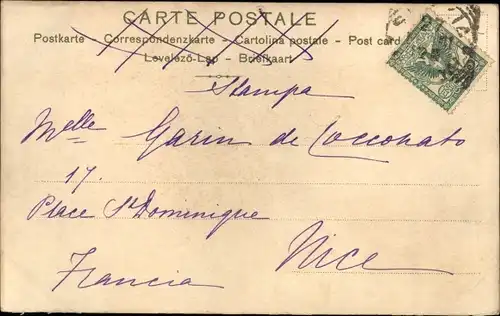 CARTE POSTALE
Postkarte - Correspondenzkarte - Cartolina postale - Post card
Levelező-Lap - Briefkaart
Stampa
Melle Garin de Cocconato
17.
Place St Dominique
Nice
Francia